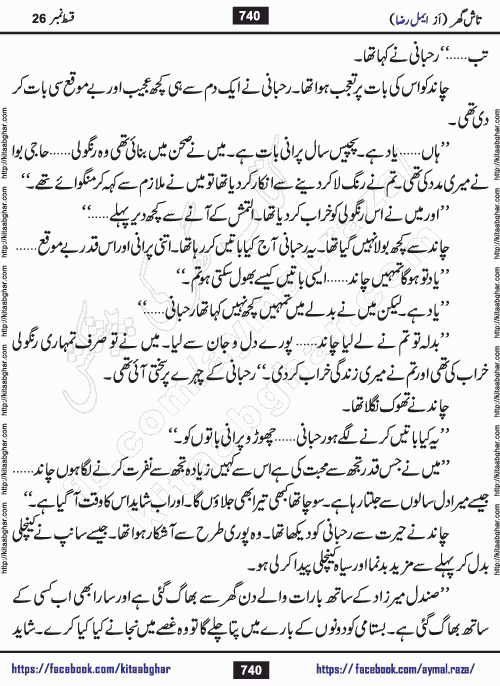 تاش گھر (از ایمل رضا)
740
قسط نمبر 26
تب......‘‘ رحبانی نے کہا تھا۔
چاند کو اس کی بات پر تعجب ہوا تھا۔ رحبانی نے ایک دم سے ہی کچھ عجیب اور بے موقع سی بات کر
دی تھی۔
’’ہاں...... یاد ہے۔ پچیس سال پرانی بات ہے۔ میں نے صحن میں بنائی تھی وہ رنگولی...... حاجی بوا
نے میری مدد کی تھی۔ تم نے رنگ لا کر دینے سے انکار کر دیا تھا تو میں نے ملازم سے کہہ کر منگوائے تھے۔‘‘
’’اور میں نے اس رنگولی کو خراب کر دیا تھا۔ التمش کے آنے سے کچھ دیر پہلے......‘‘
چاند سے کچھ بولا نہیں گیا تھا۔ یہ رحبانی آج کیا باتیں کر رہا تھا۔ اتنی پرانی اور اس قدر بے موقع......
’’یاد تو ہو گا تمہیں چاند...... ایسی باتیں کیسے بھول سکتی ہو تم۔‘‘
’’یاد ہے۔ لیکن میں نے بدلے میں تمہیں کچھ نہیں کہا تھا رحبانی......‘‘
’’بدلہ تو تم نے لے لیا چاند...... پورے دل و جان سے لیا۔ میں نے تو صرف تمہاری رنگولی
خراب کی تھی اور تم نے میری زندگی خراب کر دی۔‘‘ رحبانی کے چہرے پر سختی آئی تھی۔
چاند نے تھوک نگلا تھا۔
’’یہ کیا باتیں کرنے لگے ہو رحبانی...... چھوڑو پرانی باتوں کو۔‘‘
’’میں نے جس قدر تجھ سے محبت کی ہے اس سے کہیں زیادہ تجھ سے نفرت کرنے لگا ہوں چاند......
جیسے میرا دل سالوں سے جلتا رہا ہے۔ سوچا تھا کبھی تیرا بھی جلاؤں گا۔ اور اب شاید اس کا وقت آ گیا ہے۔‘‘
چاند نے حیرت سے رحبانی کو دیکھا تھا۔ وہ پوری طرح سے آشکار ہوا تھا۔ جیسے سانپ نے کینچلی
بدل کر پہلے سے مزید بدنما اور سیاہ کینچلی پیدا کر لی ہو۔
’’صندل میرزاد کے ساتھ بارات والے دن گھر سے بھاگ گئی ہے اور سارا بھی اب کسی کے
ساتھ بھاگ گئی ہے۔ بستامی کو دونوں کے بارے میں پتا چلے گا تو وہ غصے میں نجانے کیا کیا کرے۔ شاید
https://facebook.com/kitaabghar
740
https://facebook.com/aymal.raza/
http://kitaabghar.com
http://kitaabghar.com